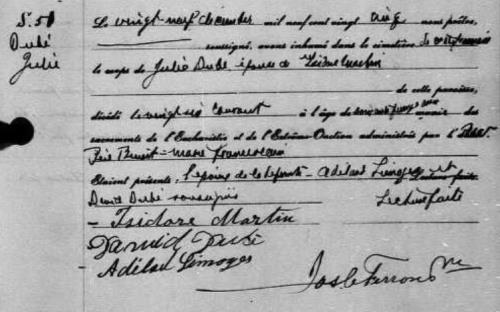 S. 51
Dubé
Julie
Le vingt-neuf décembre mil neuf cent vingt cinq nous prêtre,
soussigné, avons inhumé dans le cimetière de cette paroisse
le corps de Julie Dubé, épouse de Isidore Martin
de cette paroisse,
décédé le vingt-six courant à l'âge de munie des
sacrements de l'Eucharistie et de l'Extrême-Onction administrés par l
Père Benoit-Marie franciscain
Etaient présents, l'époux de la défunte - Adélard Limoges et
David Dubé soussignés Lecture faite
- Isidore Martin
David Dubé
Adélard Limoges
Jos. C. Ferron